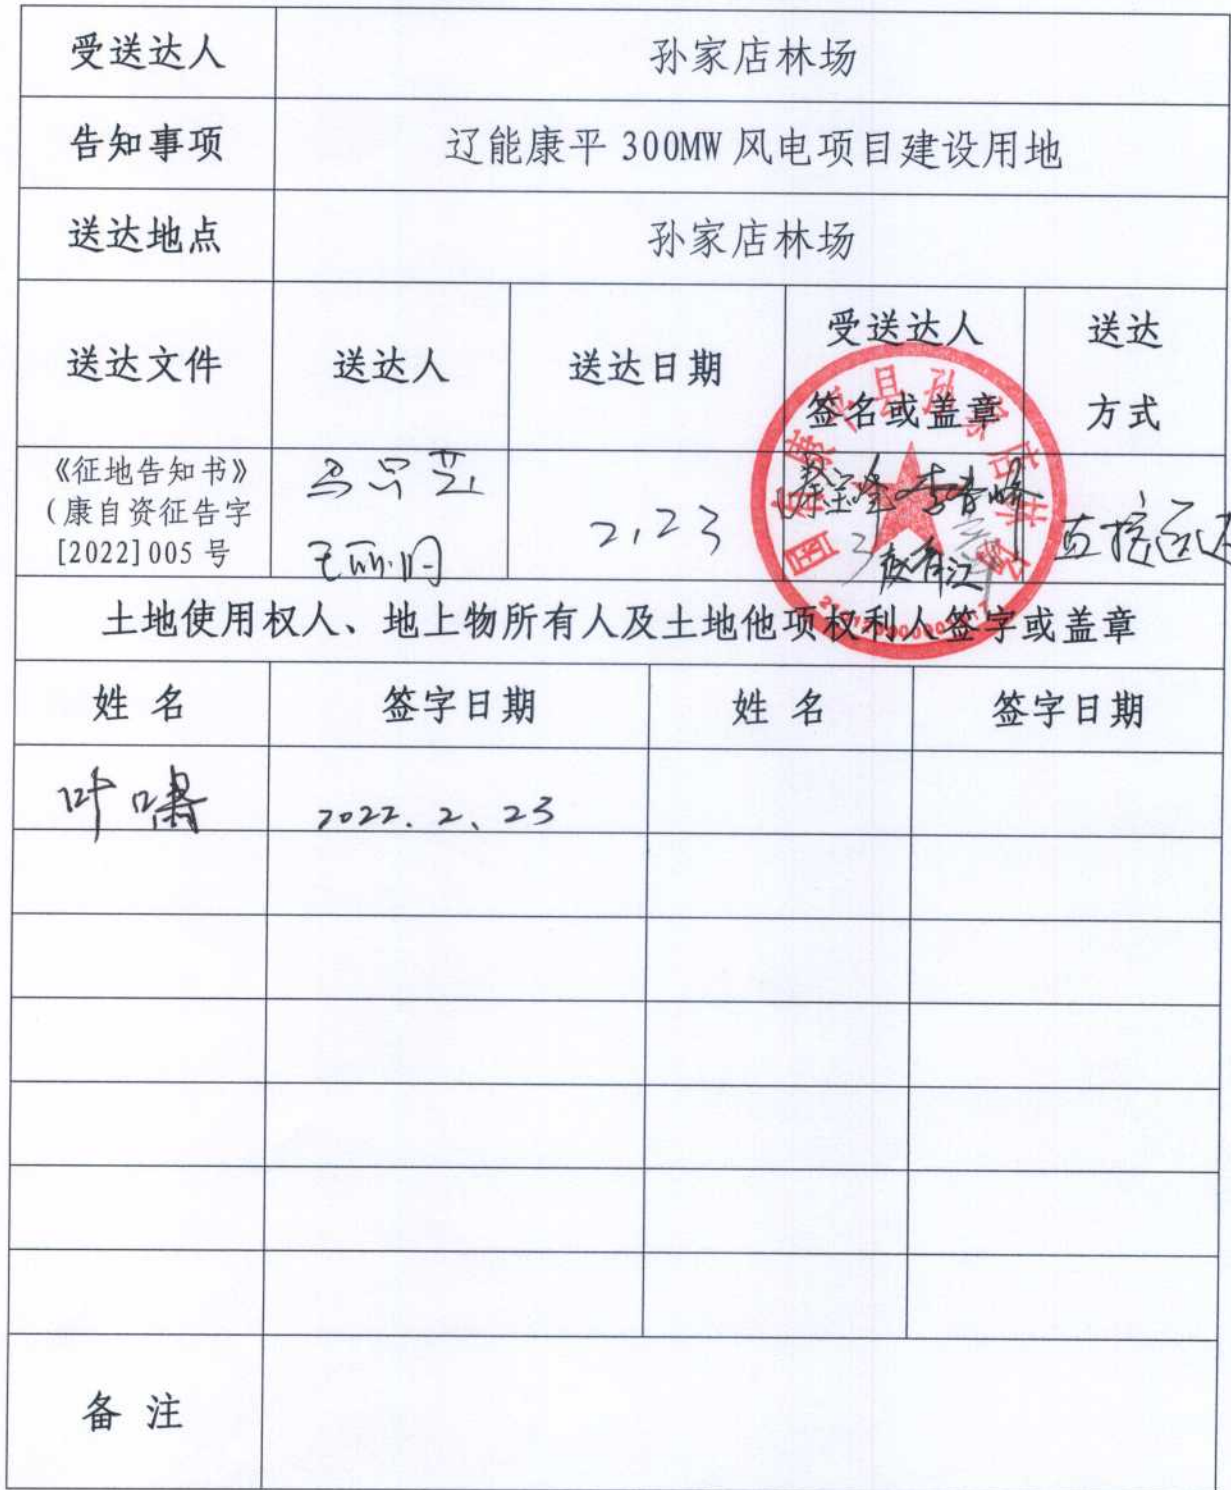 受送达人 孙家店林场
告知事项 辽能康平 300MW 风电项目建设用地
送达地点 孙家店林场
送达文件 送达人 送达日期 受送达人 签名或盖章 送达 方式
《征地告知书》
(康自资征告字
[2022]005 号
2,23
直接送达
国有康平县孙家店林场
土地使用权人、地上物所有人及土地他项权利人签字或盖章
姓 名 签字日期 姓 名 签字日期
叶啸 2022.2、23
备 注